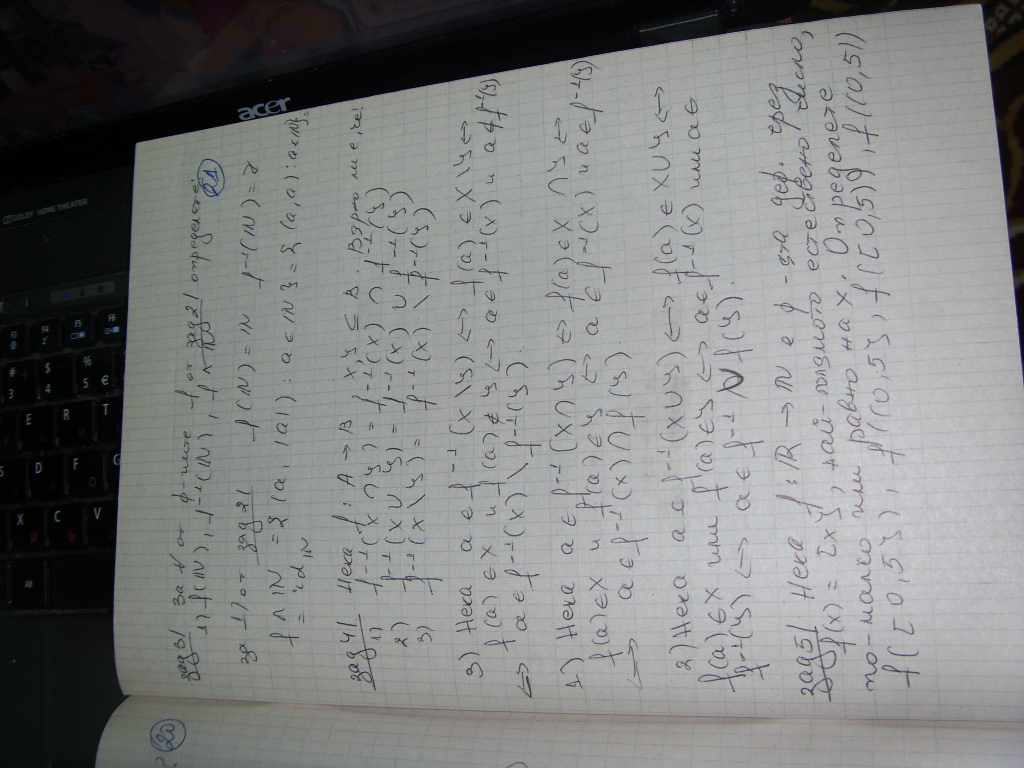 21
зад 3/ За 1/ от ф-ните f от зад 2/ определете:
1) f(ℕ), f⁻¹(ℕ), f∧ℕ.
За 1/ от зад 2/ f(ℕ)=ℕ f⁻¹(ℕ)=ℤ
f∧ℕ = {(a, |a|) : a∈ℕ} = {(a,a) : a∈ℕ}=
= id_ℕ
зад 4/ Нека f: A→B X,Y ⊆ B. Вярно ли е, че:
1) f⁻¹(X∩Y) = f⁻¹(X) ∩ f⁻¹(Y)
2) f⁻¹(X∪Y) = f⁻¹(X) ∪ f⁻¹(Y)
3) f⁻¹(X\Y) = f⁻¹(X) \ f⁻¹(Y)
3) Нека a∈ f⁻¹(X\Y) ↔ f(a)∈X\Y ↔
f(a)∈X и f(a)∉Y ↔ a∈f⁻¹(X) и a∉f⁻¹(Y)
↔ a∈f⁻¹(X) \ f⁻¹(Y).
1) Нека a∈ f⁻¹(X∩Y) ↔ f(a)∈X∩Y ↔
f(a)∈X и f(a)∈Y ↔ a∈f⁻¹(X) и a∈f⁻¹(Y)
↔ a∈f⁻¹(X)∩f(Y).
2) Нека a∈ f⁻¹(X∪Y) ↔ f(a)∈X∪Y ↔
f(a)∈X или f(a)∈Y ↔ a∈f⁻¹(X) или a∈
f⁻¹(Y) ↔ a∈f⁻¹ ∪ f(Y).
зад 5/ Нека f: ℝ→ℕ е ф-ята деф. чрез
f(x) = [x], най-голямото естествено число,
по-малко или равно на x. Определете
f([0,5]), f((0,5], f([0,5)), f((0,5))
20
acer
DOLBY HOME THEATER
F4
F5
F6
#
3
$
4
%
5
€
E
R
T
S
D
F
G
X
C
V